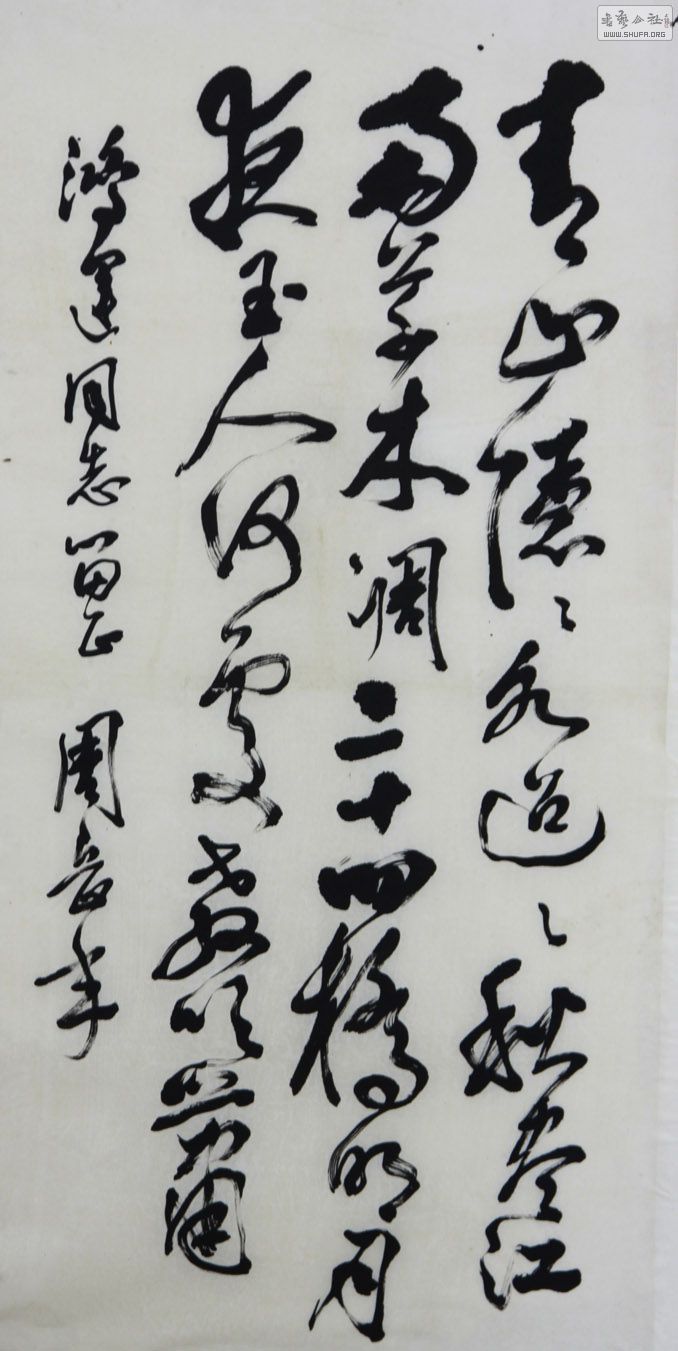 青山隱々水迢々秋盡江
南草木凋二十四橋明月
夜玉人何處教吹簫
鴻運同志留正 周
書藝公社
WWW.SHUFA.ORG